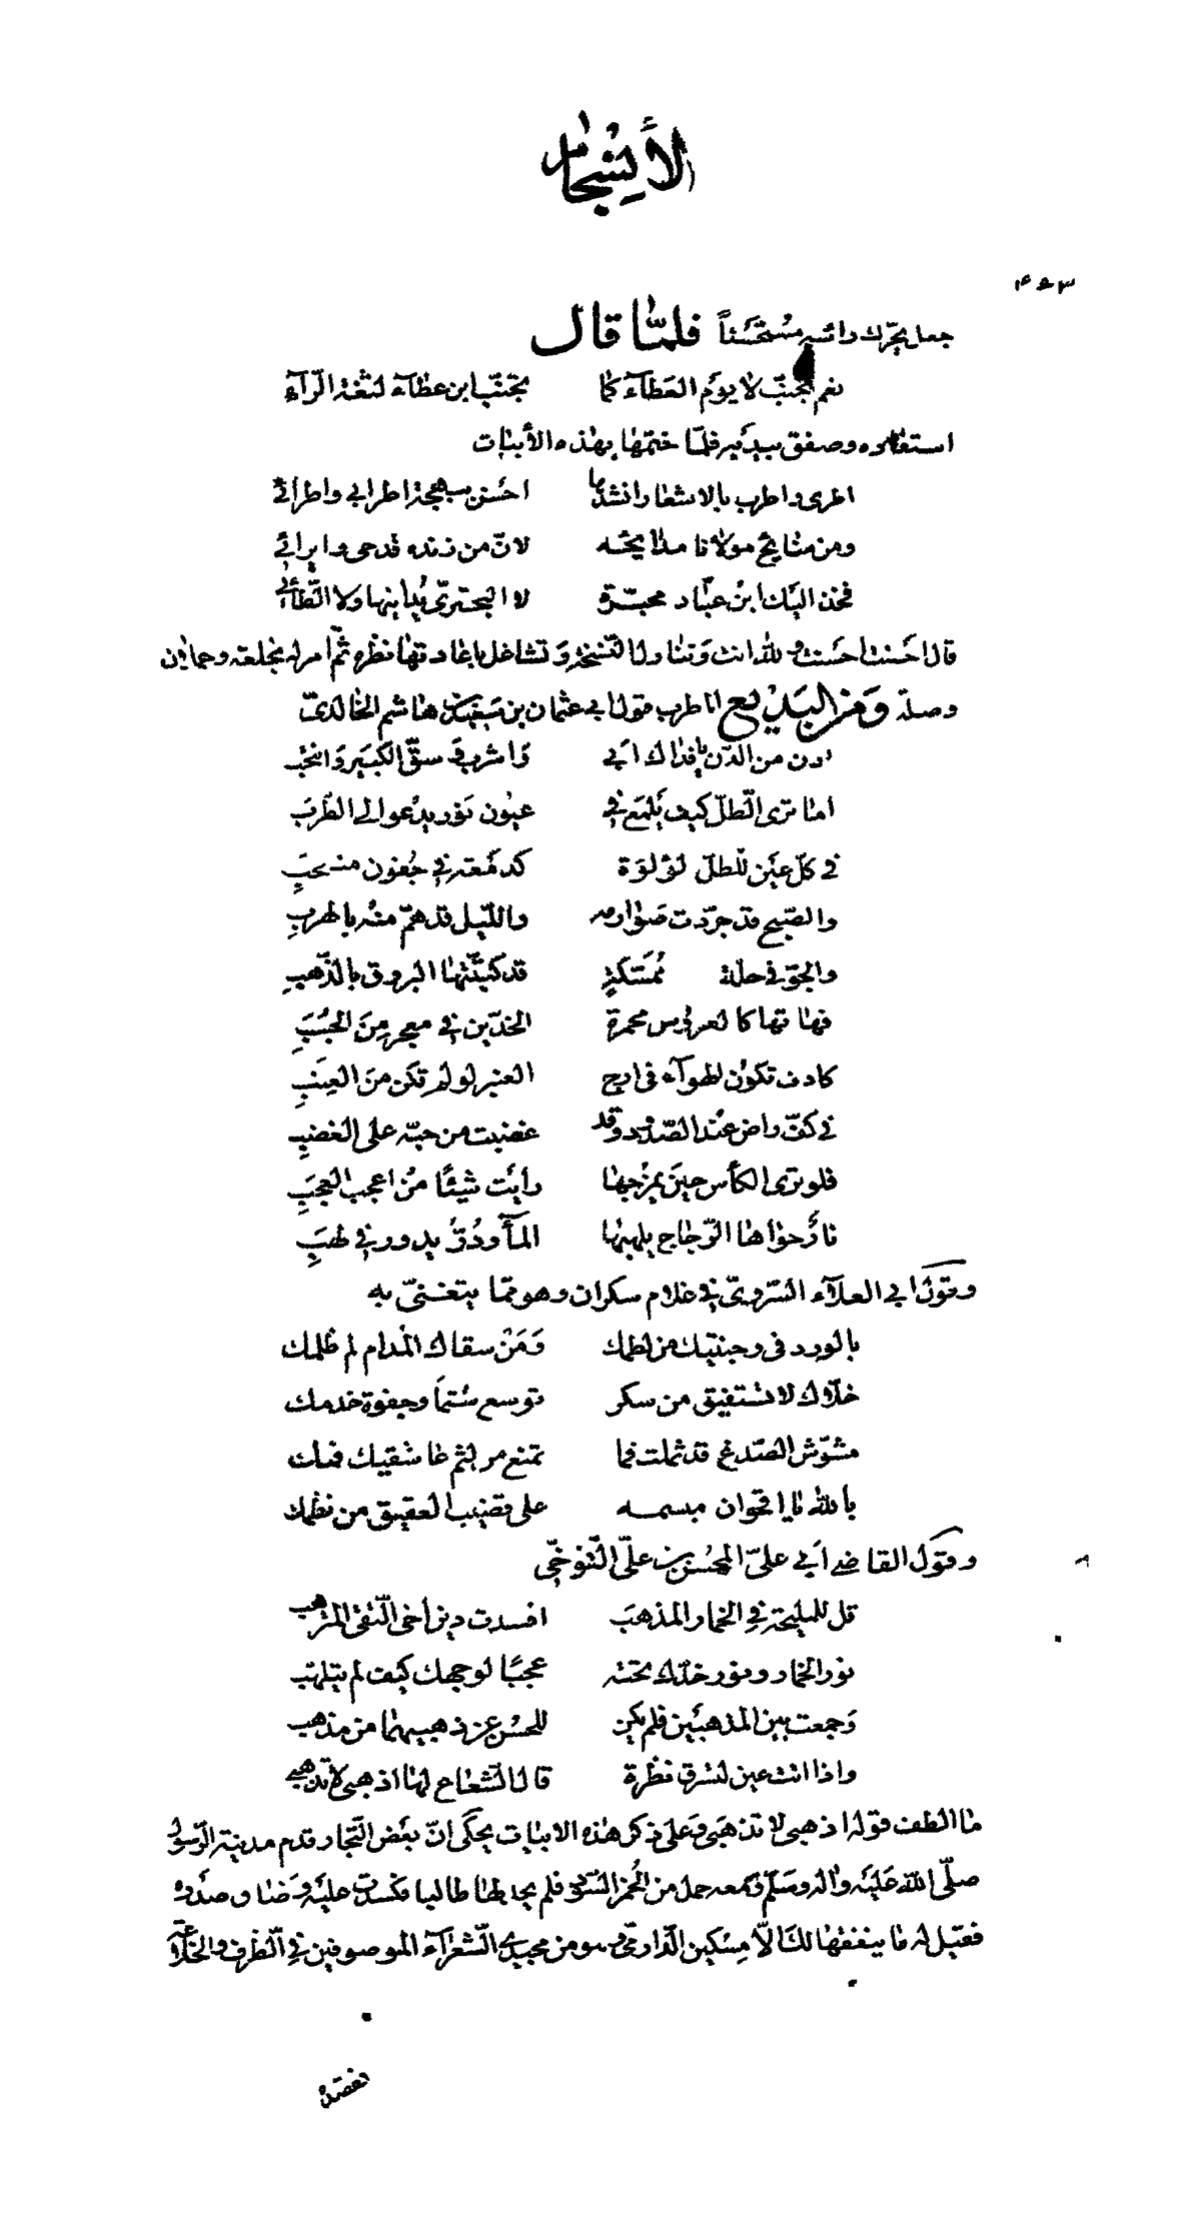 الأنسجام
٤٥٣
جعل يحرّك رأسه مستحسناً فلمّا قال
نعم تجنّب لا يوم العطآء كما تجنّب ابن عطآء لثغة الرآء
استعاده وصفق بيديه فلمّا ختمها بهذه الأبيات
اطرى واطرب بالاشعار انشدها احسن ببهجة اطرابى واطرائى
ومن منايح مولانا مدايحه لانّ من زنده قدحى وايرائى
فخذ اليك ابن عبّاد محبّرة لا البحترىّ يدانيها ولا الطّائى
قال احسنت احسنت ولله انت وتناول النّسخة وتشاغل باعادتها نظره ثمّ امر له بخلعة وحملان
وصلة ومن البديع الاطرب قول ابى عثمان بن سعيد بن هاشم الخالدىّ
ادن من الدّن يا فداك ابى واشرب وسقّ الكبير وانتخب
اما ترى الطّلّ كيف يلمع فى عيون نور يدعو الى الطّرب
فى كلّ عين للطلّ لؤلؤة كدمعة فى جفون منتحب
والصّبح قد جرّدت صوارمه واللّيل قد همّ منه بالهرب
والجوّ فى حلّة ممسّكة قد كتبتها البروق بالذّهب
فهاتها كالعروس محمرة الخدّين فى معجر من الحبب
كادت تكون الهوآء فى ارج العنبر لو لم تكن من العنب
فى كفّ راض عند الصّدود وقد غضبت من حبّه على الغضب
فلو ترى الكأس حين يمزجها رأيت شيئًا من اعجب العجب
نار حواها الزّجاج يلهبها المآء ودرّ يدور فى لهب
وقول ابى العلآء السّروىّ فى غلام سكران وهو ممّا يتغنّى به
بالورد فى وجنتيك من لطمك ومن سقاك المدام لم ظلمك
خلّاك لا تستفيق من سكر توسع شتما وجفوة خدمك
مشوّش الصّدغ قد ثملت فما تمنع من لثم عاشقيك فمك
بالله يا اقحوان مبسمه على قضيب العقيق من نظمك
وقول القاضى ابى علىّ المحسن بن علىّ التّنوخىّ
قل للمليحة فى الخمار المذهب افسدت دين أخى التّقى المترهب
نور الخمار ونور خدّك تحته عجبًا لوجهك كيف لم يتلهّب
وجمعت بين المذهبين فلم يكن للحسن عن ذهبيهما من مذهب
واذا اتت عين لتسرق نظرة قال الشّعاع لها اذهبى لا تذهبى
ما الطف قوله اذهبى لا تذهبى وعلى ذكر هذه الابيات يحكى انّ بعض التّجار قدم مدينة الرّسول
صلّى الله عليه واله وسلّم ومعه حمل من الخمر السّود فلم يجد لها طالبا فكسدت عليه وضاق صدره
فقيل له ما ينفقها لك الّا مسكين الدّارمىّ وهو من مجيدى الشّعرآء الموصوفين فى الظّرف والخلاعة